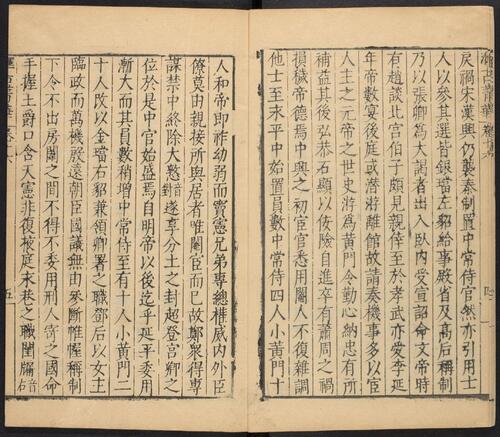 戾禍宋漢興仍襲秦制置中常侍官然亦引用士
人以參其選皆銀璫左貂給事殿省及高后稱制
乃以張卿為大謁者出入臥內受宣詔命文帝時
有趙談北宮伯子頗見親倖至於孝武亦愛李延
年帝數宴後庭或潛游離館故請奏機事多以宦
人主之元帝之世史游為黃門令勤心納忠有所
補益其後弘恭石顯以佞險自進卒有蕭周之禍
損穢帝德焉中興之初宦官悉用閹人不復雜調
他士至永平中始置員數中常侍四人小黃門十
人和帝即祚幼弱而竇憲兄弟專總權威內外臣
僚莫由親接所與居者唯閹宦而已故鄭衆得專
謀禁中終除大憝音對遂享分土之封超登宮卿之
位於是中官始盛焉自明帝以後迄乎延平委用
漸大而其員數稍增中常侍至有十人小黃門二
十人改以金璫右貂兼領卿署之職鄧后以女主
臨政而萬機殷遠朝臣國議無由參斷帷幄稱制
下令不出房闈之間不得不委用刑人寄之國命
手握王爵口含天憲非復掖庭永巷之職閨牖音右
五